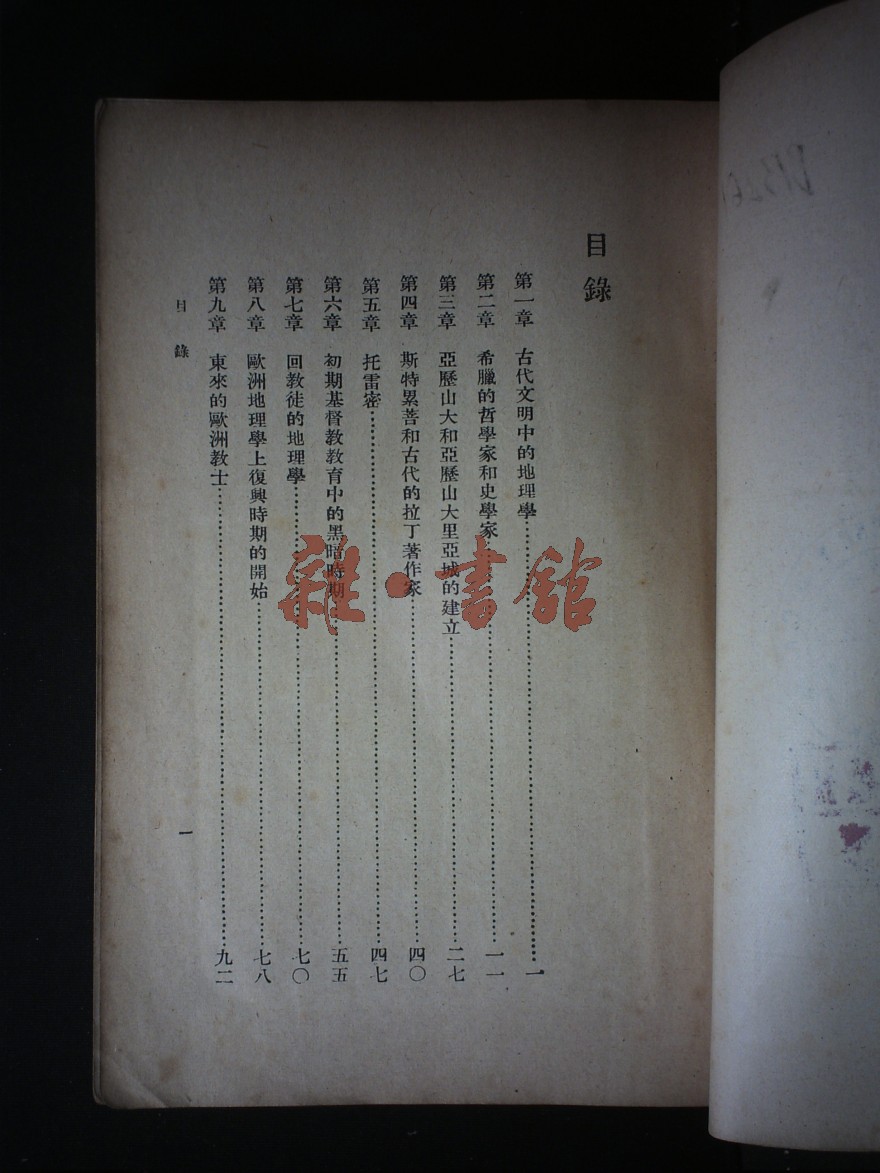 目錄
第一章 古代文明中的地理學……一
第二章 希臘的哲學家和史學家……一一
第三章 亞歷山大和亞歷山大里亞城的建立……二七
第四章 斯特累菩和古代的拉丁著作家……四〇
第五章 托雷密……四七
第六章 初期基督教教育中的黑暗時期……五五
第七章 回教徒的地理學……七〇
第八章 歐洲地理學上復興時期的開始……七八
第九章 東來的歐洲教士……九二
目錄 一
雜·書館